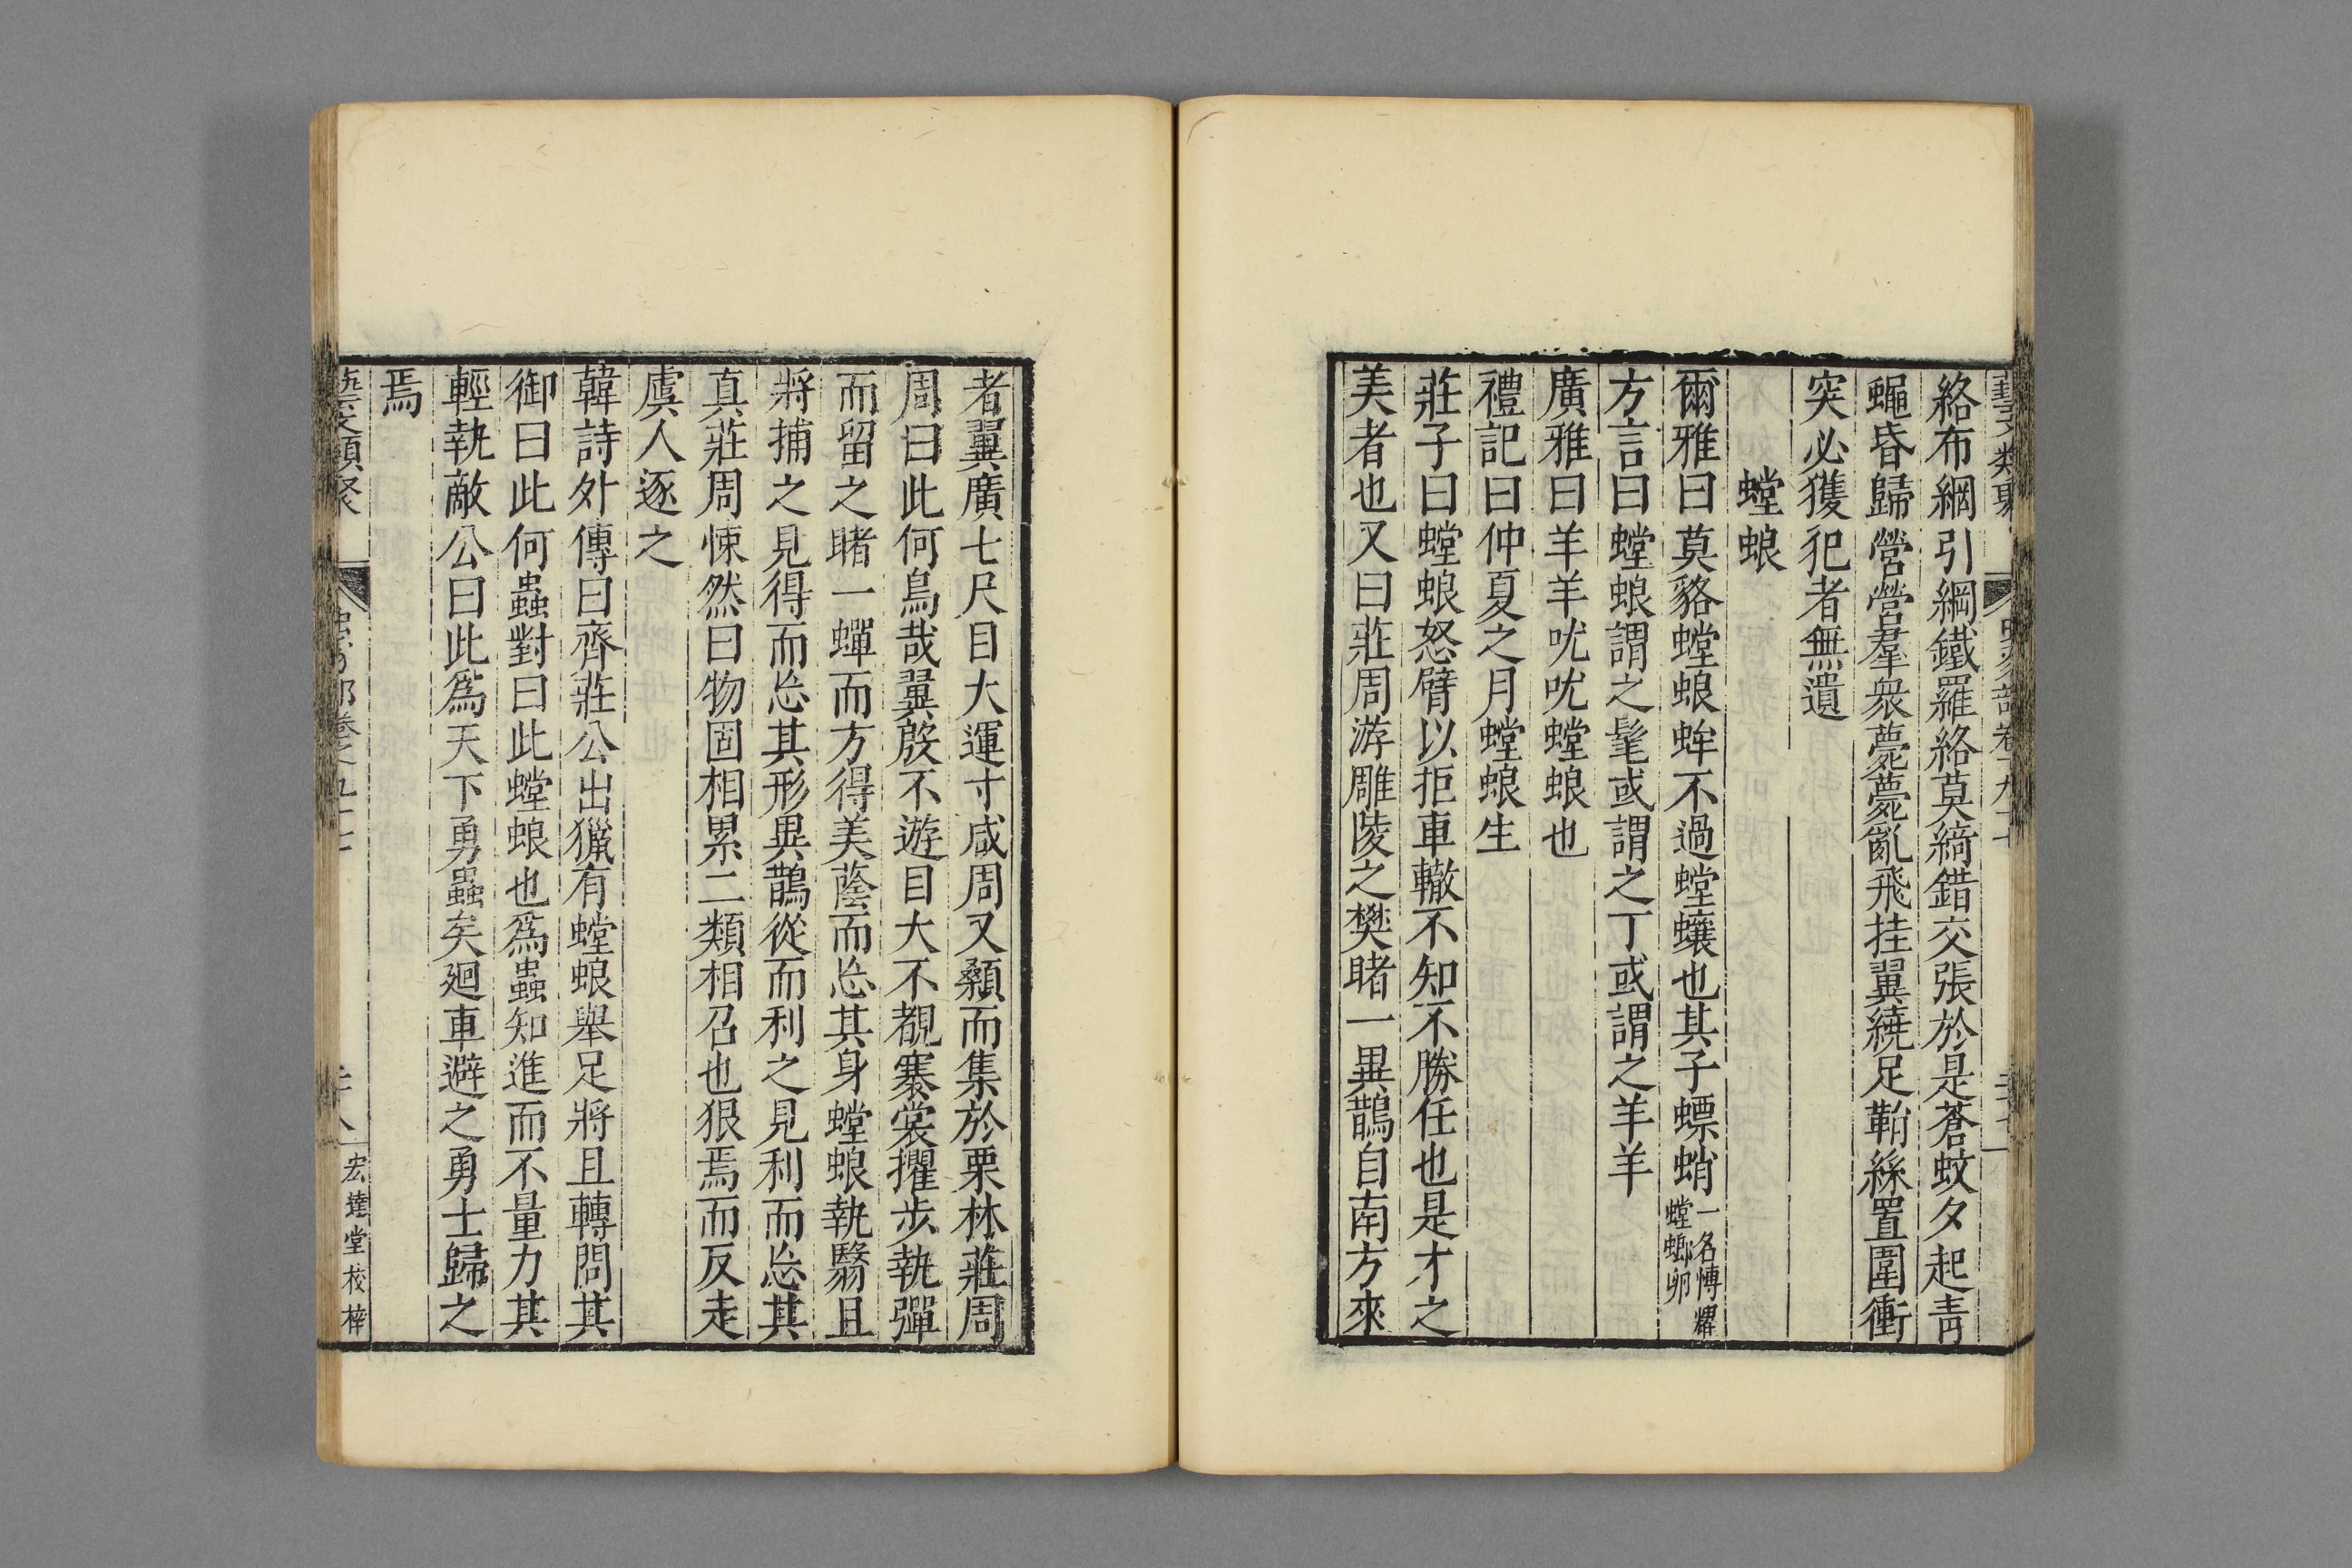 絡布網引綱鐵羅絡莫綺錯交張於是蒼蚊夕起青
蠅昏歸營營羣衆薨薨亂飛挂翼繞足鞘絲置圍衝
突必獲犯者無遺
螳蜋
爾雅曰莫貉螳蜋蛑不過螳蠰也其子螵蛸一名慱𧊱螳螂卵
方言曰螳蜋謂之髦或謂之丁或謂之羊羊
廣雅曰羊羊吠吠螳蜋也
禮記曰仲夏之月螳蜋生
莊子曰螳蜋怒臂以拒車轍不知不勝任也是才之
美者也又曰莊周游雕陵之樊睹一異鵲自南方來
者翼廣七尺目大運寸咸周又顙而集於栗林莊周
周曰此何鳥哉翼殷不遊目大不覩褰裳攫步執彈
而留之睹一蟬而方得美蔭而忘其身螳蜋執翳且
將捕之見得而忘其形異鵲從而利之見利而忘其
真莊周悚然曰物固相累二類相召也狠焉而反走
虞人逐之
韓詩外傳曰齊莊公出獵有螳蜋舉足將且轉問其
御曰此何蟲對曰此螳蜋也爲蟲知進而不量力其
輕執敵公曰此爲天下勇蟲矣廻車避之勇士歸之
焉
藝文類聚
宏達堂校梓